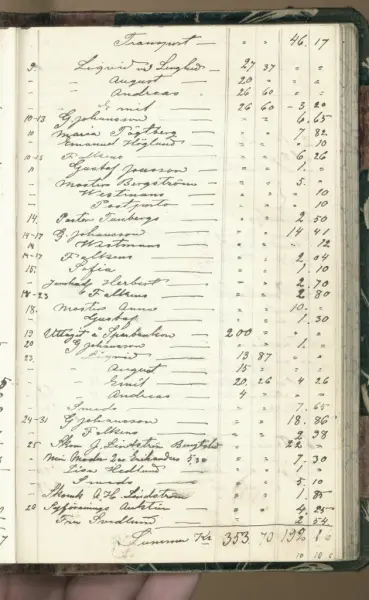 Transport — " " 46. 17
9. Liqvid 27 37 " "
- - August 20 " " "
- - Andreas 26 60 " "
- - Emil 26 60 - 3 20
10-13 G Johansson " " 6. 65
10 Maria " " 7. 82
Emanuel Höglund " " " 10
10-15 Falkens " " 6 26
11 Gustaf Jonsson — " " 1. "
- Moster Bergström — " " 5. "
- Westmans — " " " 10
- Postporto — " " " 10
14. Pastor Tenbergs — " " 2 50
14-17 G Johansson — " " 14 41
14 Westmans — " " " 12
14-17 Falkens — " " 2. 04
15. Sofia — " " 1. 10
- Herbert — " " 2. 70
18-23 Falkens — " " 2 80
18. Moster Anna — " " 10. -
- Gustaf — " " 1. 30
19 Uttaget å Sparbanken — 200 " " "
20 G Johansson — " " 1. "
23. Liqvid — 13 87 " "
- - August 15 " " "
- - Emil 20. 26 4 26
- - Andreas 4 " " "
Smeds — " " 7. 65
24-31 G Johansson — " " 18. 86
- Falkens — " " 2 98
25 Skom J. Lindström " " 22 "
- Min Moder 5.30 " " 7. 30
- Lisa Hedlund " " 1. "
- Smeds — " " 5. 10
- A. H. Lindström " " 1. 85
20 Syförenings " " 4. 25
- Fru Svedlund — " " 2. 54
Summa Kr 353 70 192